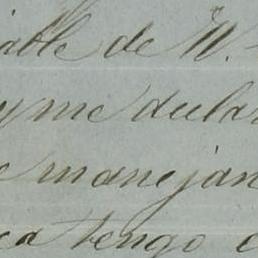 able de N.
y me declar
e manejan
ca tengo e